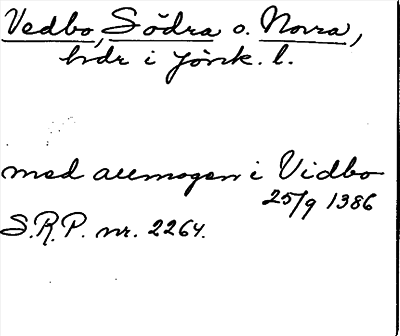 Vedbo, Södra o. Norra,
hdr i Jönk. l.
med allmogen i Vidbo
25/9 1386
S.R.P. nr. 2264.